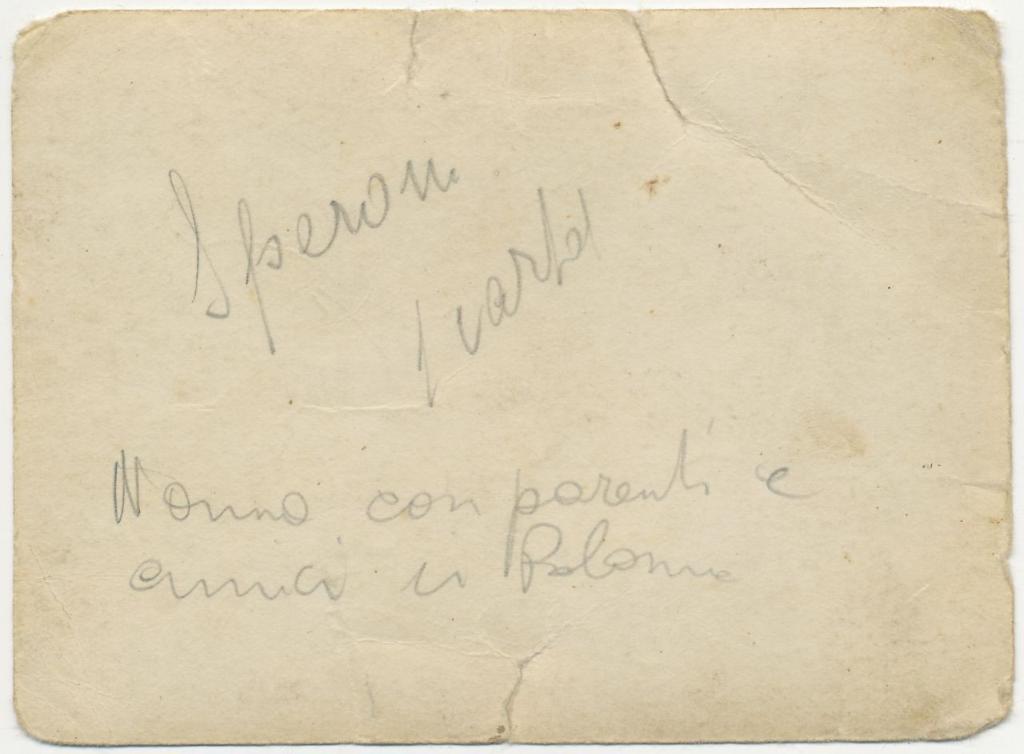 Speroni
Nonno con parenti e
amici in Polonia